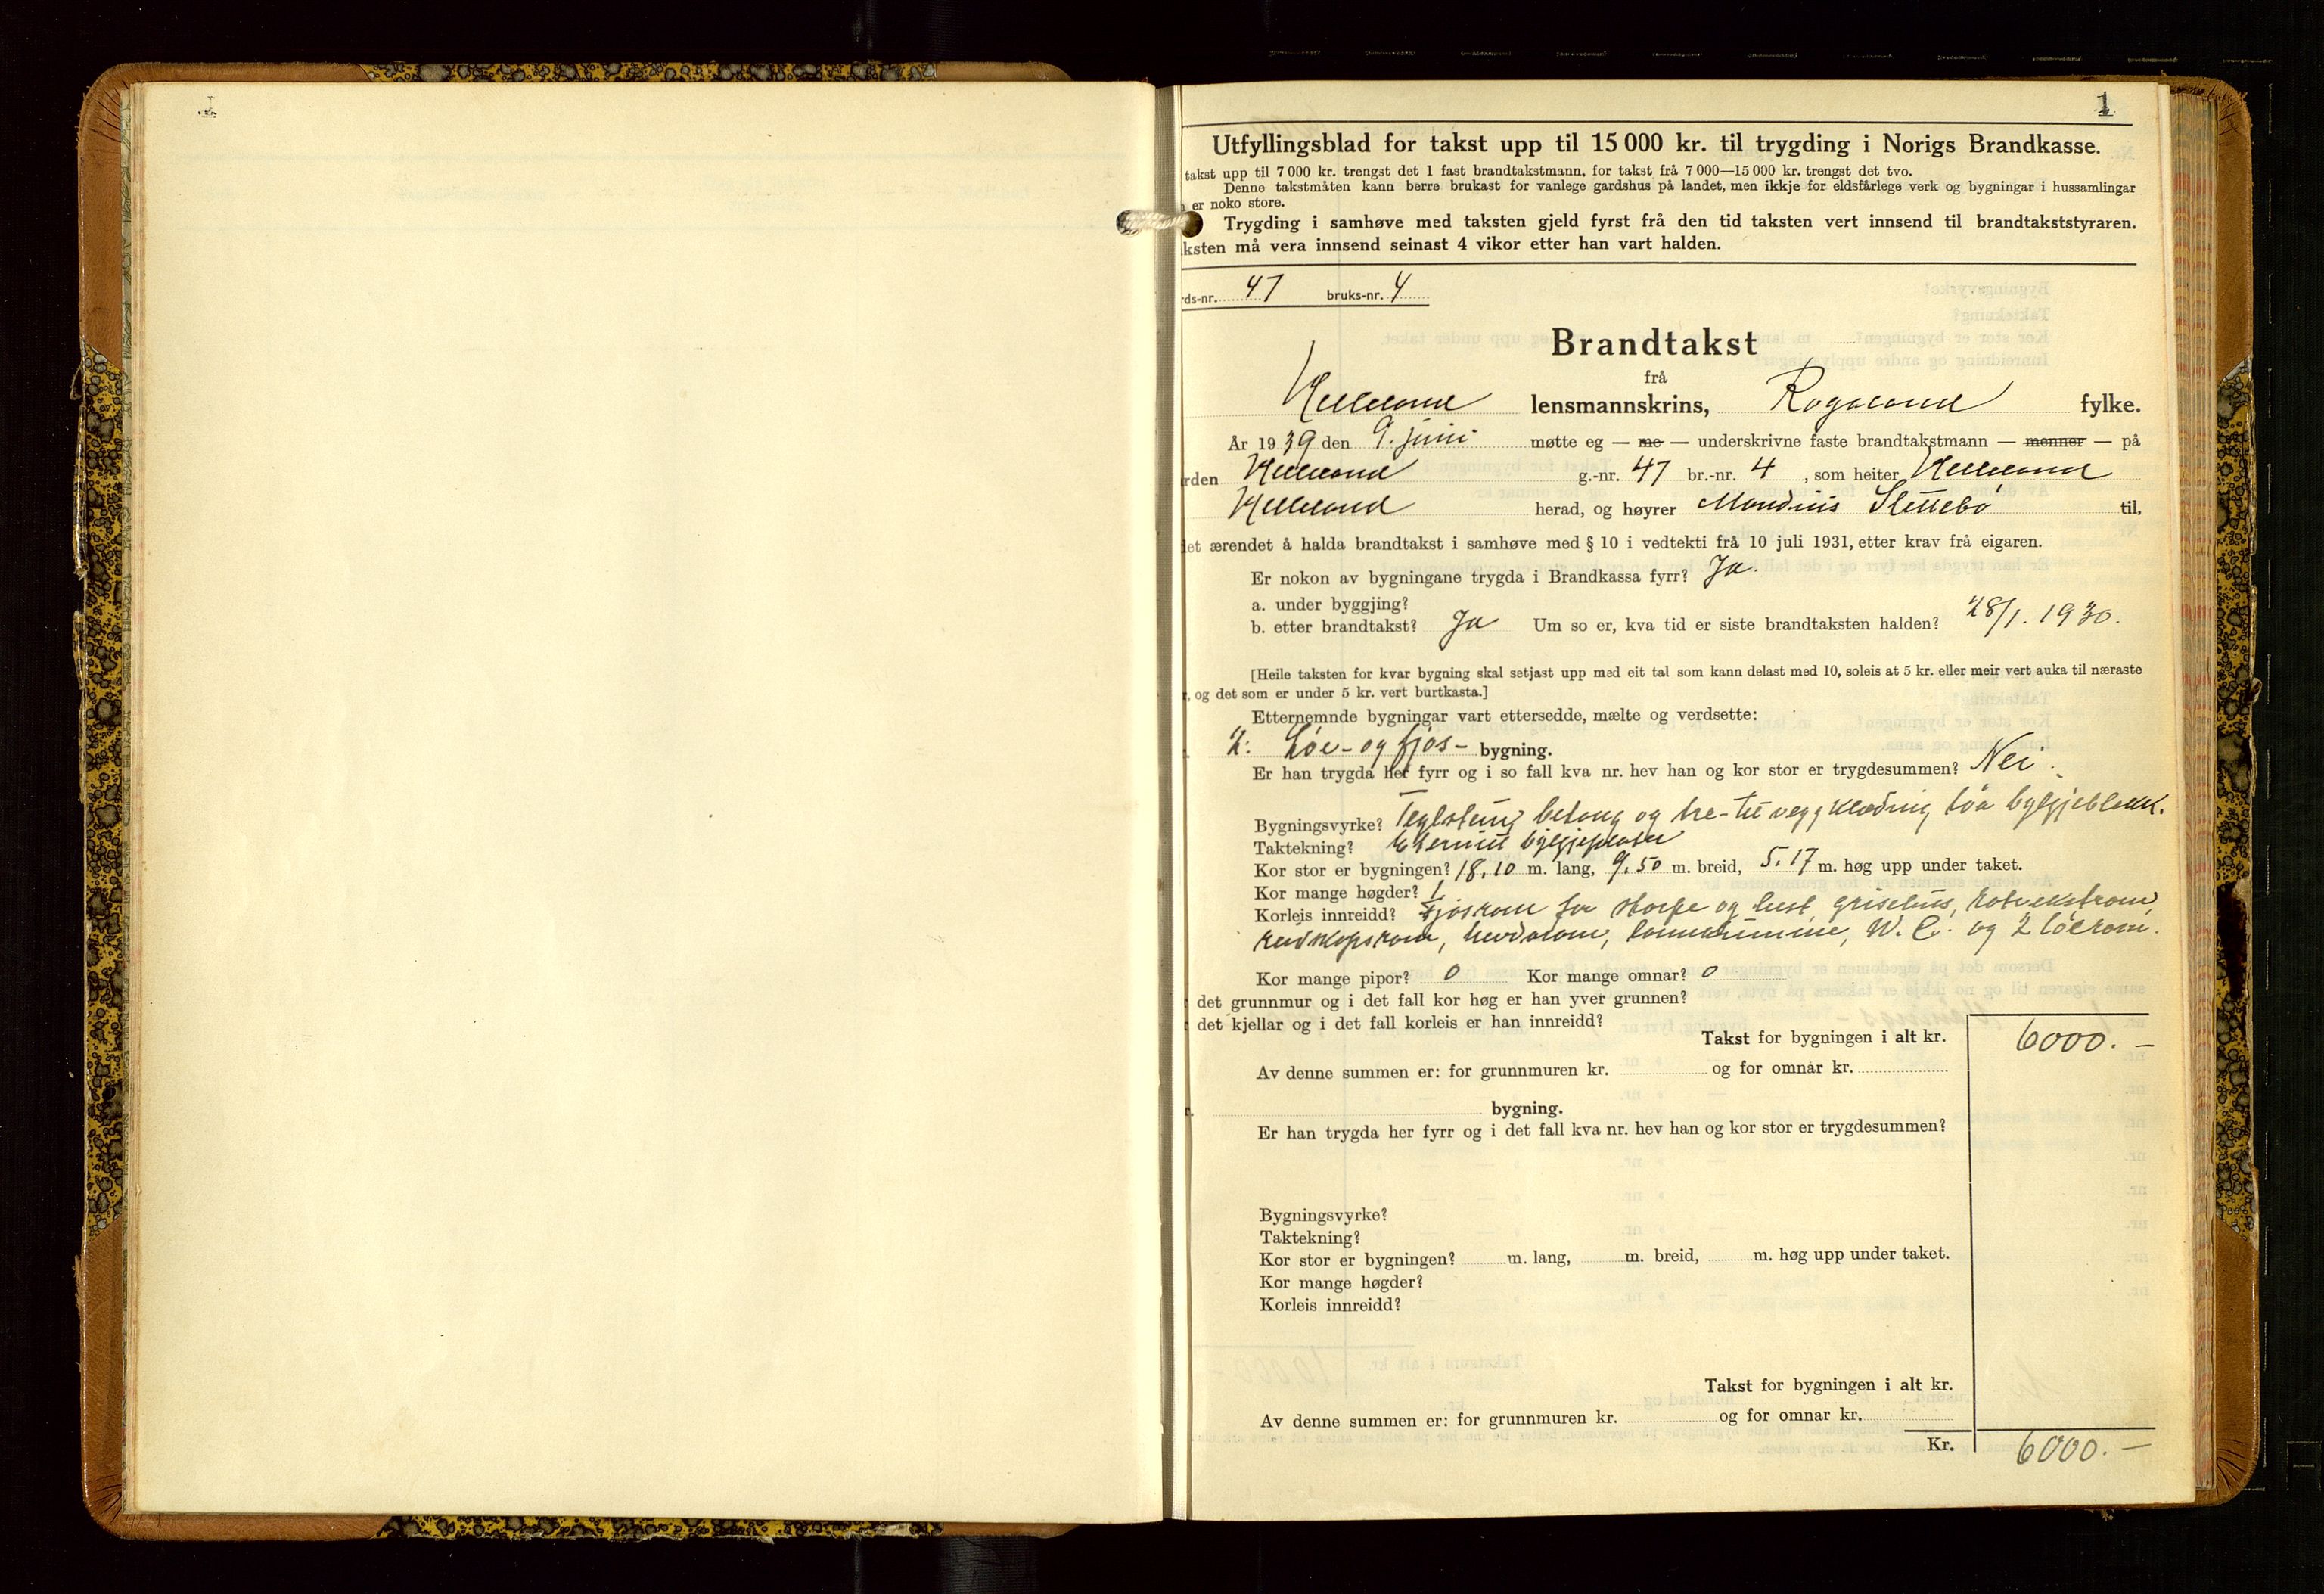 1
Utfyllingsblad for takst upp til 15 000 kr. til trygding i Norigs Brandkasse.
takst upp til 7 000 kr. trengst det 1 fast brandtakstmann, for takst frå 7 000—15 000 kr. trengst det tvo.
Denne takstmåten kann berre brukast for vanlege gardshus på landet, men ikkje for eldsfårlege verk og bygningar i hussamlingar
er noko store.
Trygding i samhøve med taksten gjeld fyrst frå den tid taksten vert innsend til brandtakststyraren.
ksten må vera innsend seinast 4 vikor etter han vart halden.
ds-nr. 47 bruks-nr. 4
Brandtakst
frå
Helleland lensmannskrins, Rogaland fylke.
År 1939 den 9. juni møtte eg — me — underskrivne faste brandtakstmann — menner — på
rden Helleland g.-nr. 47 br.-nr. 4 , som heiter Helleland
Helleland herad, og høyrer Mandius Slettebø til,
et ærendet å halda brandtakst i samhøve med § 10 i vedtekti frå 10 juli 1931, etter krav frå eigaren.
Er nokon av bygningane trygda i Brandkassa fyrr? Ja.
a. under byggjing?
b. etter brandtakst? Ja Um so er, kva tid er siste brandtaksten halden? 28/1. 1930.
[Heile taksten for kvar bygning skal setjast upp med eit tal som kann delast med 10, soleis at 5 kr. eller meir vert auka til næraste
, og det som er under 5 kr. vert burtkasta.]
Etternemnde bygningar vart ettersedde, mælte og verdsette:
2. Løe- og fjøs- bygning.
Er han trygda her fyrr og i so fall kva nr. hev han og kor stor er trygdesummen? Nei.
Bygningsvyrke? Teglstein, betong og tre- til veggklædning bylgjeblekk.
Taktekning? Eternitt bylgjeplater
Kor stor er bygningen? 18,10 m. lang, 9,50 m. breid, 5.17 m. høg upp under taket.
Kor mange høgder? 1
Korleis innreidd? Fjøsrom for storfe og hest, grisehus, rotvekstrom,
reidskapsrom, W.C. og 2 løerom.
Kor mange pipor? 0 Kor mange omnar? 0
det grunnmur og i det fall kor høg er han yver grunnen?
det kjellar og i det fall korleis er han innreidd?
Takst for bygningen i alt kr. 6000.—
Av denne summen er: for grunnmuren kr. og for omnar kr.
bygning.
Er han trygda her fyrr og i det fall kva nr. hev han og kor stor er trygdesummen?
Bygningsvyrke?
Taktekning?
Kor stor er bygningen? m. lang, m. breid, m. høg upp under taket.
Kor mange høgder?
Korleis innreidd?
Takst for bygningen i alt kr.
Av denne summen er: for grunnmuren kr. og for omnar kr.
Kr. 6000.—